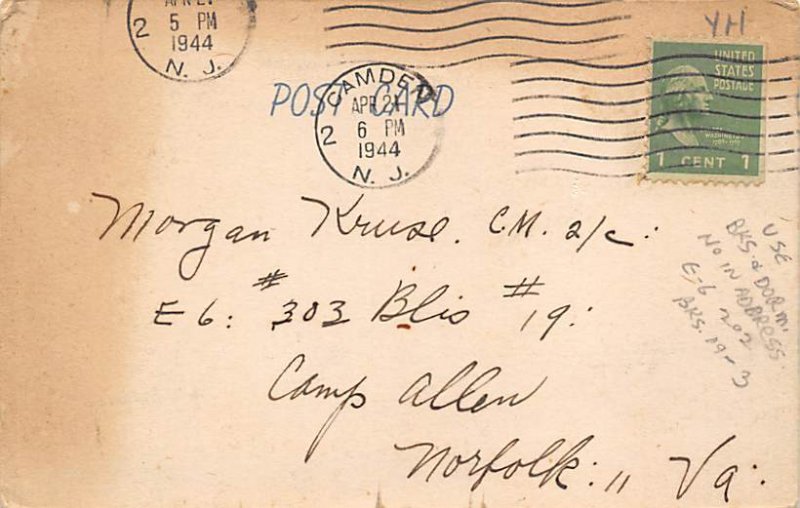 2
5 PM
1944
N. J.
YH
POST CARD
CAMDEN
APR 2
2
6 PM
1944
N. J.
UNITED
STATES
POSTAGE
WASHINGTON
1 CENT 1
Morgan Kruse. C.M. 2/c:
E 6: #303 Blis #19:
Camp Allen
Norfolk: 11 Va:
USE
BKS. & DORM.
NO IN ADDRESS
E-6 202
BKS. 19-3